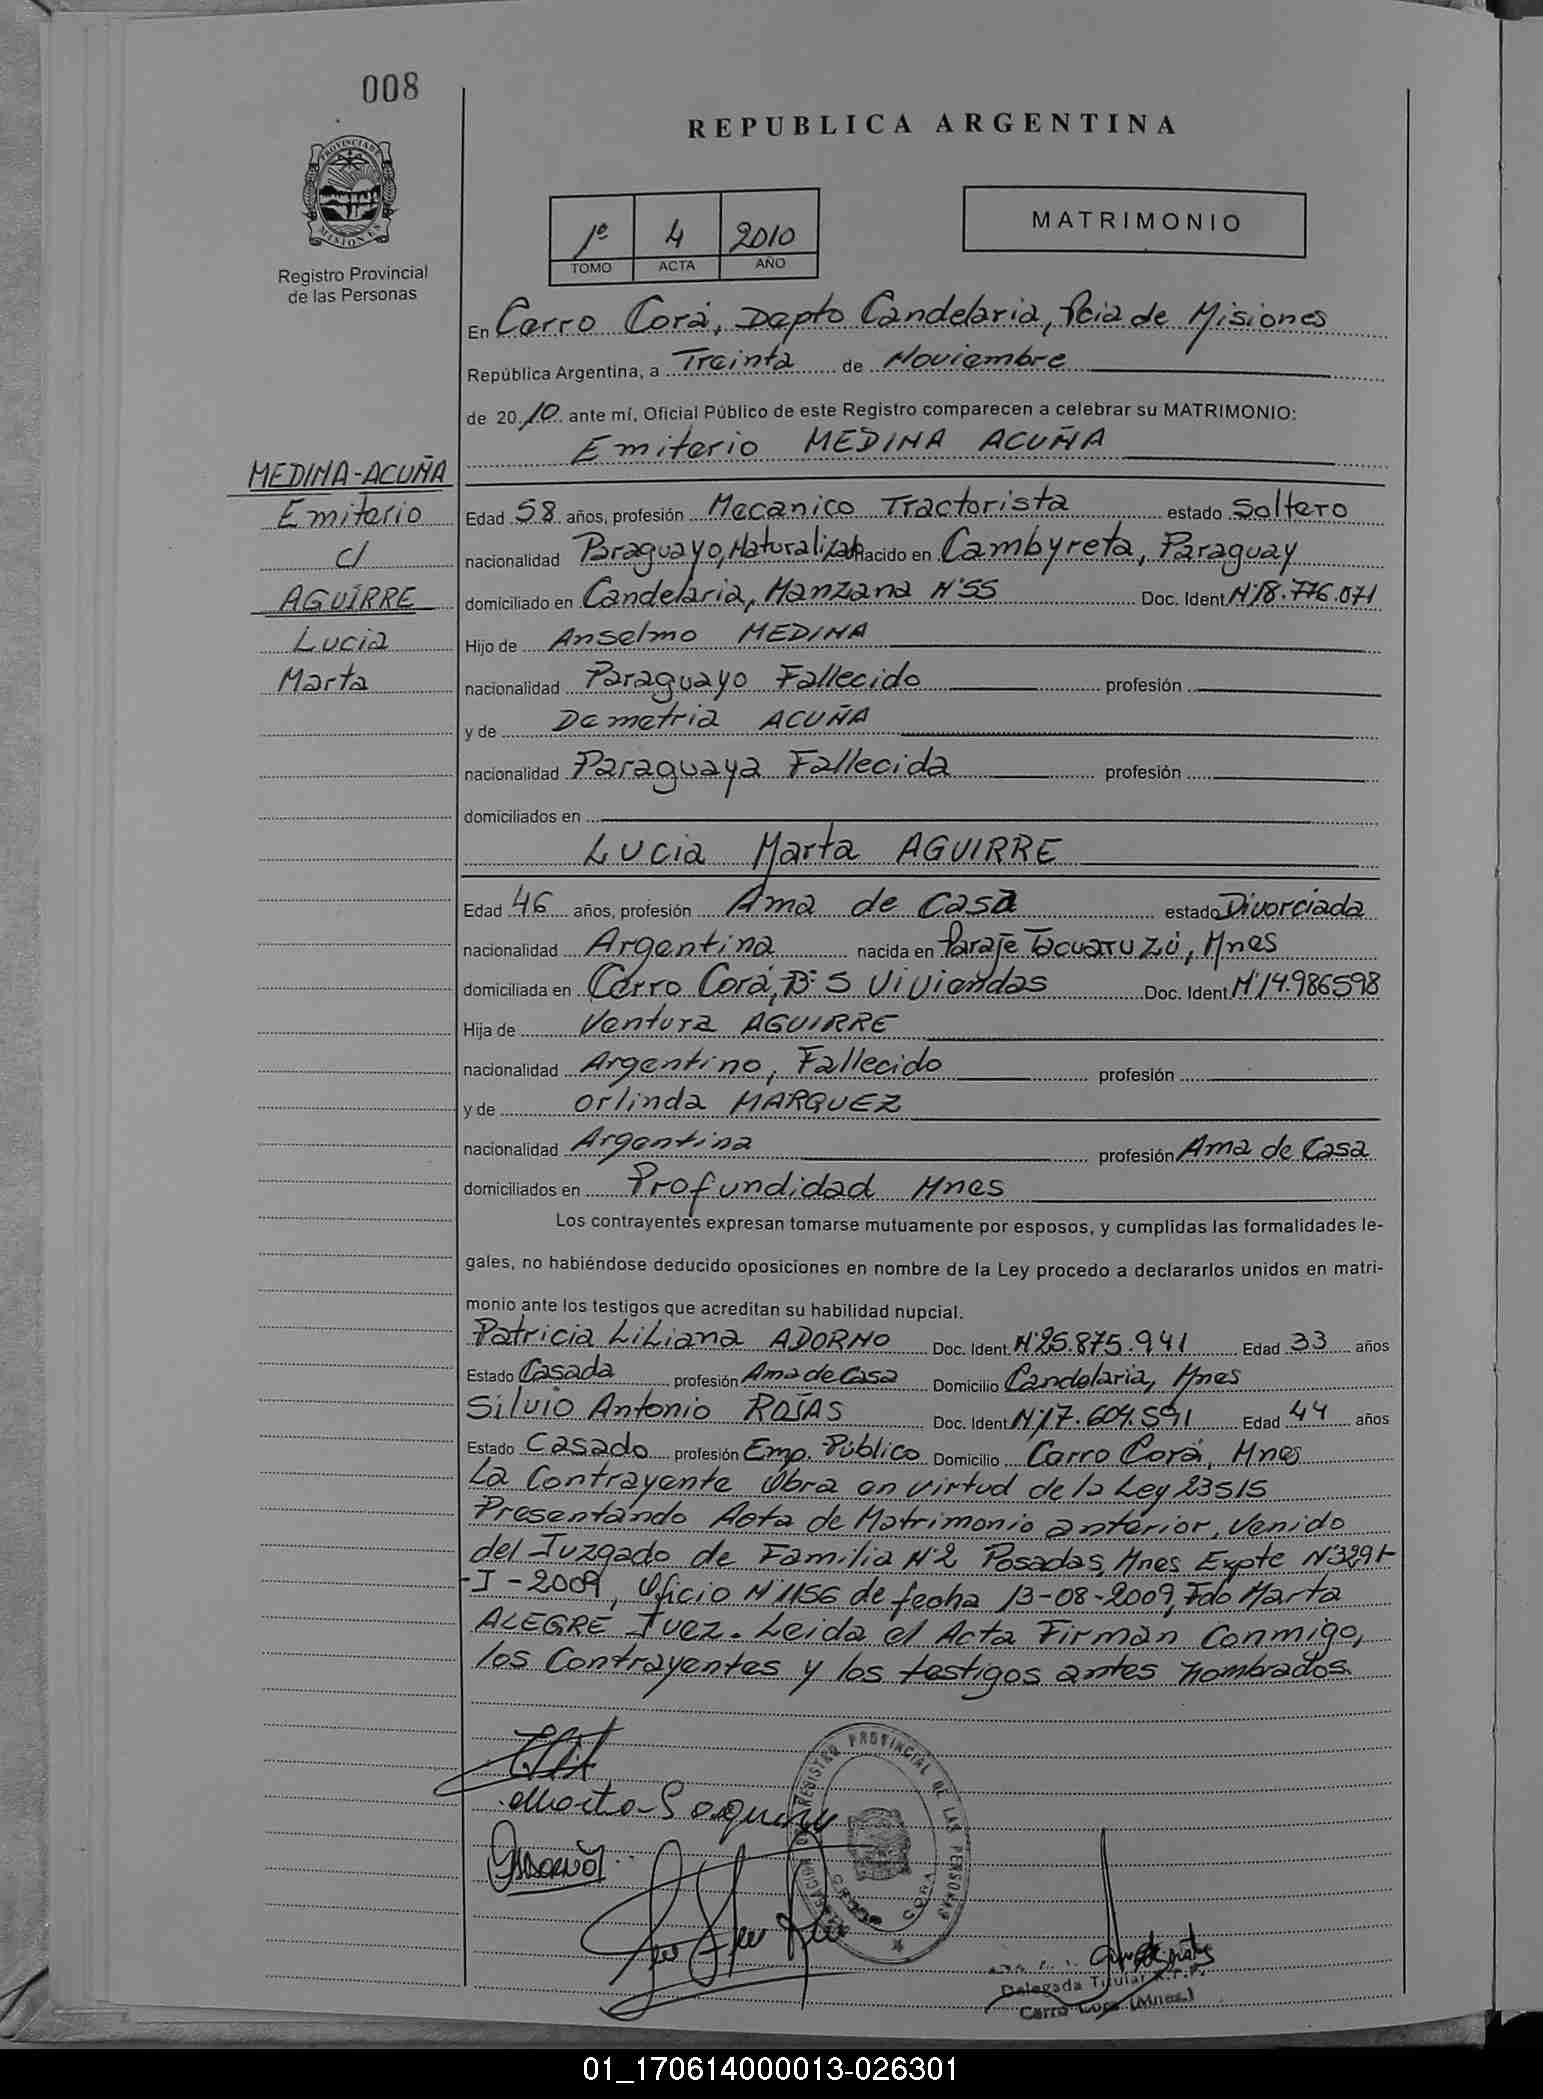 008
REPUBLICA ARGENTINA
PROVINCIA DE
MISIONES
Registro Provincial
de las Personas
1º 4 2010
TOMO ACTA AÑO
MATRIMONIO
En Cerro Corá, Depto Candelaria, Pcia de Misiones
República Argentina, a Treinta de Noviembre
de 2010 ante mí, Oficial Público de este Registro comparecen a celebrar su MATRIMONIO:
Emiterio MEDINA ACUÑA
MEDINA-ACUÑA
Emiterio
c/
AGUIRRE
Lucia
Marta
Edad 58 años, profesión Mecanico Tractorista estado Soltero
nacionalidad Paraguayo, Naturalizado nacido en Cambyreta, Paraguay
domiciliado en Candelaria, Manzana Nº55 Doc. Ident Nº18.776.071
Hijo de Anselmo MEDINA
nacionalidad Paraguayo Fallecido profesión
y de Demetria ACUÑA
nacionalidad Paraguaya Fallecida profesión
domiciliados en
Lucia Marta AGUIRRE
Edad 46 años, profesión Ama de Casa estado Divorciada
nacionalidad Argentina nacida en Paraje Tacuaruzú, Mnes
domiciliada en Cerro Corá, Bº 5 Viviendas Doc. Ident Nº14.986598
Hija de Ventura AGUIRRE
nacionalidad Argentino, Fallecido profesión
y de Orlinda MARQUEZ
nacionalidad Argentina profesión Ama de Casa
domiciliados en Profundidad Mnes
Los contrayentes expresan tomarse mutuamente por esposos, y cumplidas las formalidades le-
gales, no habiéndose deducido oposiciones en nombre de la Ley procedo a declararlos unidos en matri-
monio ante los testigos que acreditan su habilidad nupcial.
Patricia Liliana ADORNO Doc. Ident. Nº25.875.941 Edad 33 años
Estado Casada profesión Ama de Casa Domicilio Candelaria, Mnes
Silvio Antonio ROJAS Doc. Ident Nº17.604.591 Edad 44 años
Estado Casado profesión Emp. Público Domicilio Cerro Corá, Mnes
La Contrayente Obra en virtud de la Ley 23515
Presentando Acta de Matrimonio anterior, Venido
del Juzgado de Familia Nº2 Posadas, Mnes Expte Nº3291-
-I-2009, Oficio Nº1156 de fecha 13-08-2009, Fdo Marta
ALEGRE Juez. Leida el Acta Firman Conmigo,
los Contrayentes y los testigos antes nombrados.
REGISTRO PROVINCIAL DE LAS PERSONAS
Delegada Titular R.P.P.
Cerro Cora (Mnes.)
01_170614000013-026301